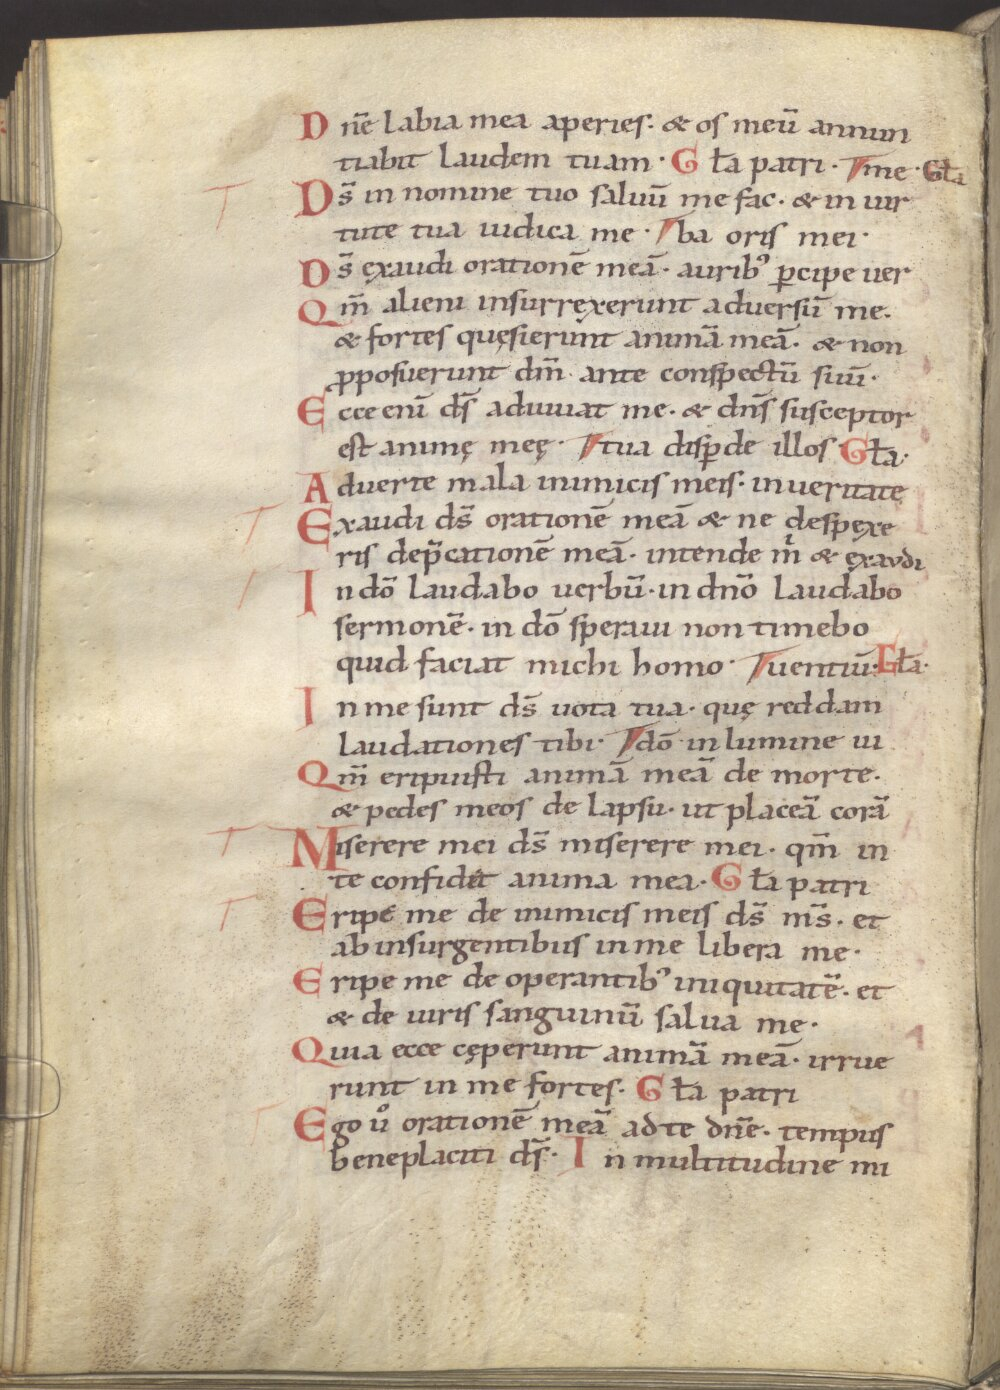 Dn̄e labia mea aperies· & os meū annun
tiabit laudem tuam· Gl̄a patri· me· Gl̄a
Ds̄ in nomine tuo saluū me fac· & in uir
tute tua iudica me· ba oris mei·
Ds̄ exaudi orationē meā· aurib; ꝑcipe uer
Qm̄ alieni insurręxerunt aduersū me.
& fortes quęsierunt animā meā· & non
ꝓposuerunt dm̄ ante conspectū suū·
Ecce eni ds̄ adiuuat me· & dn̄s susceptor
est animę meę· tua disꝑde illos Gl̄a·
Aduerte mala inimicis meis· in ueritate
Exaudi ds̄ orationē meā & ne despexe
ris dep̄cationē meā· intende m̄ & exaudi
In dō laudabo uerbū· in dn̄o laudabo
sermonē· in dō speraui non timebo
quid faciat michi homo· uentiū· Gl̄a·
In me sunt ds̄ uota tua· quę reddam
laudationes tibi· dō in lumine ui
Qm̄ eripuisti animā meā de morte·
& pedes meos de lapsu· ut placeā corā
Miserere mei ds̄ miserere mei· qm̄ in
te confidit anima mea· Gl̄a patri
Eripe me de inimicis meis ds̄ ms̄· et
ab insurgentibus in me libera me·
Eripe me de operantib; iniquitatē· et
& de uiris sanguinū salua me·
Quia ecce cęperunt animā meā· irrue
runt in me fortes· Gl̄a patri
Ego uͦ orationē meā ad te dn̄e· tempus
beneplaciti ds̄· In multitudine mi